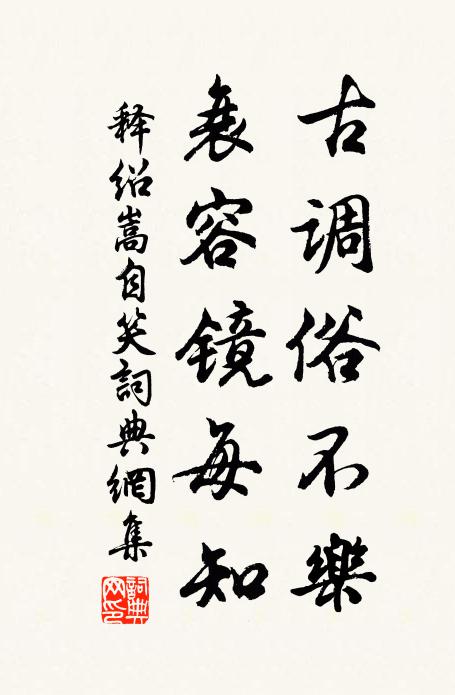 古调俗不樂
衰容镜每知
释绍嵩自笑詞典網集
詞典网印